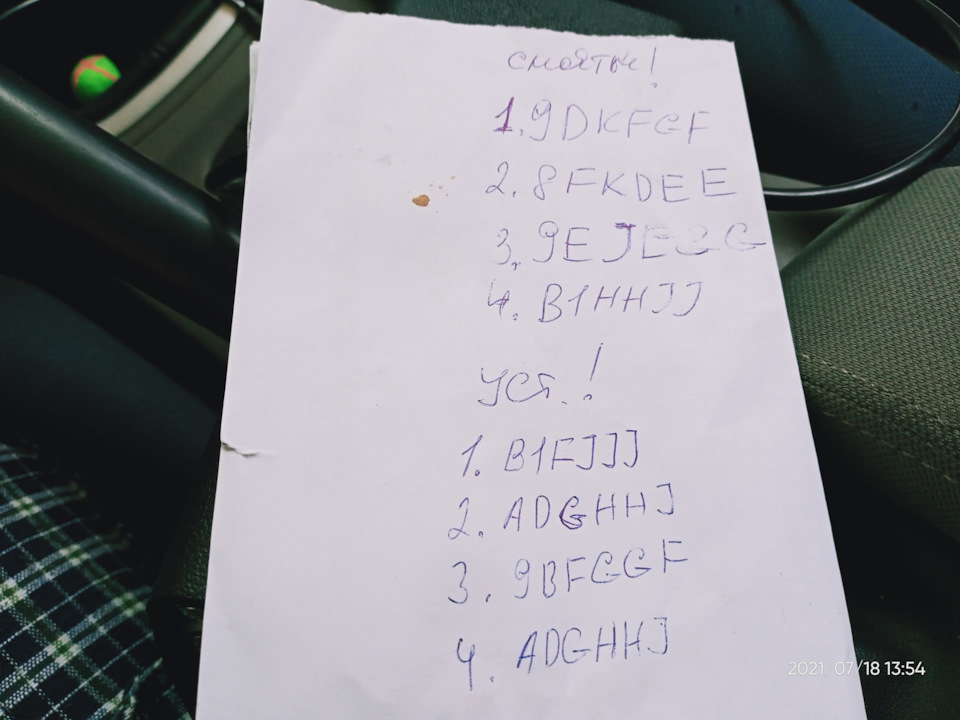 сняты!
1. 9DKFGF
2. 8FKDEE
3. 9EJEGG
4. B1HHJJ
уст.!
1. B1FJJJ
2. ADGHHJ
3. 9BFGGF
4. ADGHHJ
2021 07/18 13:54